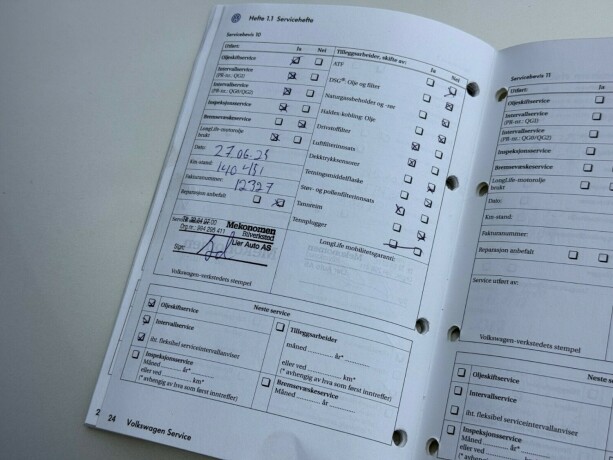 Hefte 1.1 Servicehefte
Servicebevis 10
Utført: Ja Nei
Oljeskiftservice
Intervallservice
(PR-nr.: QG1)
Intervallservice
(PR-nr.: QG0/QG2)
Inspeksjonsservice
Bremsevæskeservice
LongLife-motorolje
brukt
Dato: 27.06.23
Km-stand: 140 451
Fakturanummer: 12327
Reparasjon anbefalt
Org.nr.: 984 295 411
Mekonomen
Bilverksted
Lier Auto AS
Sign:
Volkswagen-verkstedets stempel
Tilleggsarbeider, skifte av: Ja Nei
ATF
DSG®: Olje og filter
Naturgassbeholder og -rør
Haldex-kobling: Olje
Drivstoffilter
Luftfilterinnsats
Dekktrykksensorer
Tetningsmiddelflaske
Støv- og pollenfilterinnsats
Tannreim
Tennplugger
LongLife mobilitetsgaranti:
Neste service
Oljeskiftservice
Intervallservice
iht. fleksibel serviceintervallanviser
Inspeksjonsservice
Måned .......... år*
eller ved .......... km*
(* avhengig av hva som først inntreffer)
Tilleggsarbeider
måned .......... år*
eller ved .......... km*
(* avhengig av hva som først inntreffer)
Bremsevæskeservice
Måned .......... år
2 24 Volkswagen Service
Servicebevis 11
Utført:
Oljeskiftservice
Intervallservice
(PR-nr.: QG1)
Intervallservice
(PR-nr.: QG0/QG2)
Inspeksjonsservice
Bremsevæskeservice
LongLife-motorolje
brukt
Dato:
Km-stand:
Fakturanummer:
Reparasjon anbefalt
Service utført av:
Volkswagen-verkstedets stempel
Neste
Oljeskiftservice
Intervallservice
iht. fleksibel serviceintervallanviser
Inspeksjonsservice
Måned .......... år*
eller ved .......... km*
(* avhengig av hva som først inntreffer)